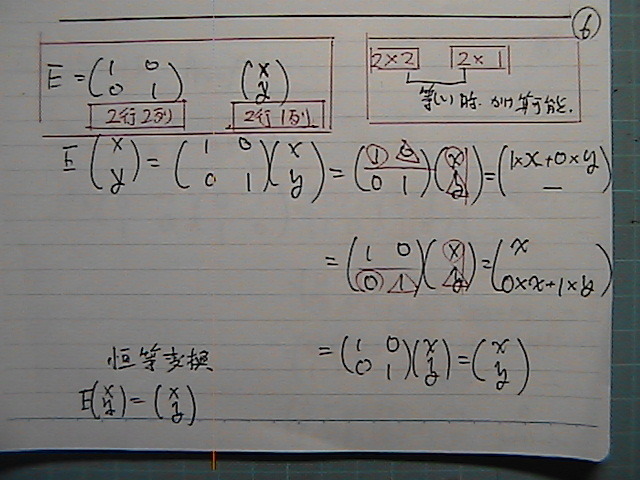 ⑥
E = (1 0 / 0 1) (x / y)
2行2列 2行1列
2×2 2×1
等しい時、かけ算可能.
E (x / y) = (1 0 / 0 1)(x / y) = (1 0 / 0 1)(x / y) = (1×x+0×y / —)
= (1 0 / 0 1)(x / y) = (x / 0×x+1×y)
= (1 0 / 0 1)(x / y) = (x / y)
恒等変換
E(x / y) = (x / y)